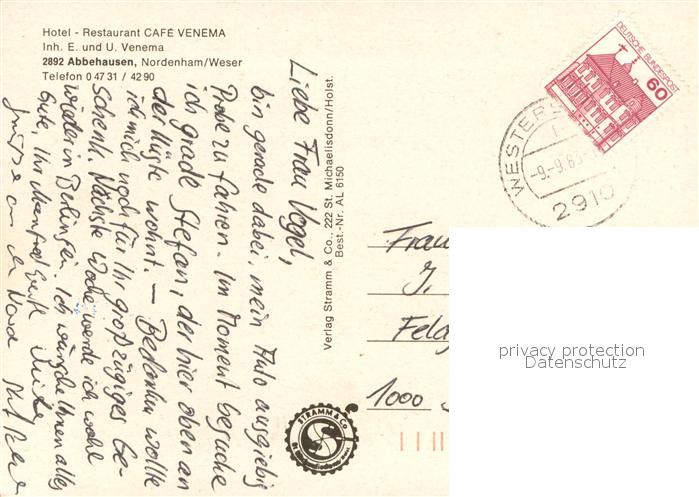 Hotel - Restaurant CAFÉ VENEMA
Inh. E. und U. Venema
2892 Abbehausen, Nordenham/Weser
Telefon 0 47 31 / 42 90
Liebe Frau Vogel,
bin gerade dabei, mein Auto ausgiebig
Probe zu fahren. Im Moment besuche
ich grade Stefan, der hier oben an
der Küste wohnt. — Bedanken wollte
ich mich noch für Ihr großzügiges Ge-
schenk. Nächste Woche werde ich wohl
wieder in Berlin sein. Ich wünsche Ihnen alles
Gute, Ihr Manfred
Grüße an
Verlag Stramm & Co., 222 St. Michaelisdonn/Holst.
Best.-Nr. AL 6150
STRAMM & Co
St. Michaelisdonn
DEUTSCHE BUNDESPOST
60
WESTERS
-9.-9.83
2910
Frau
J.
Feld
1000
privacy protection
Datenschutz